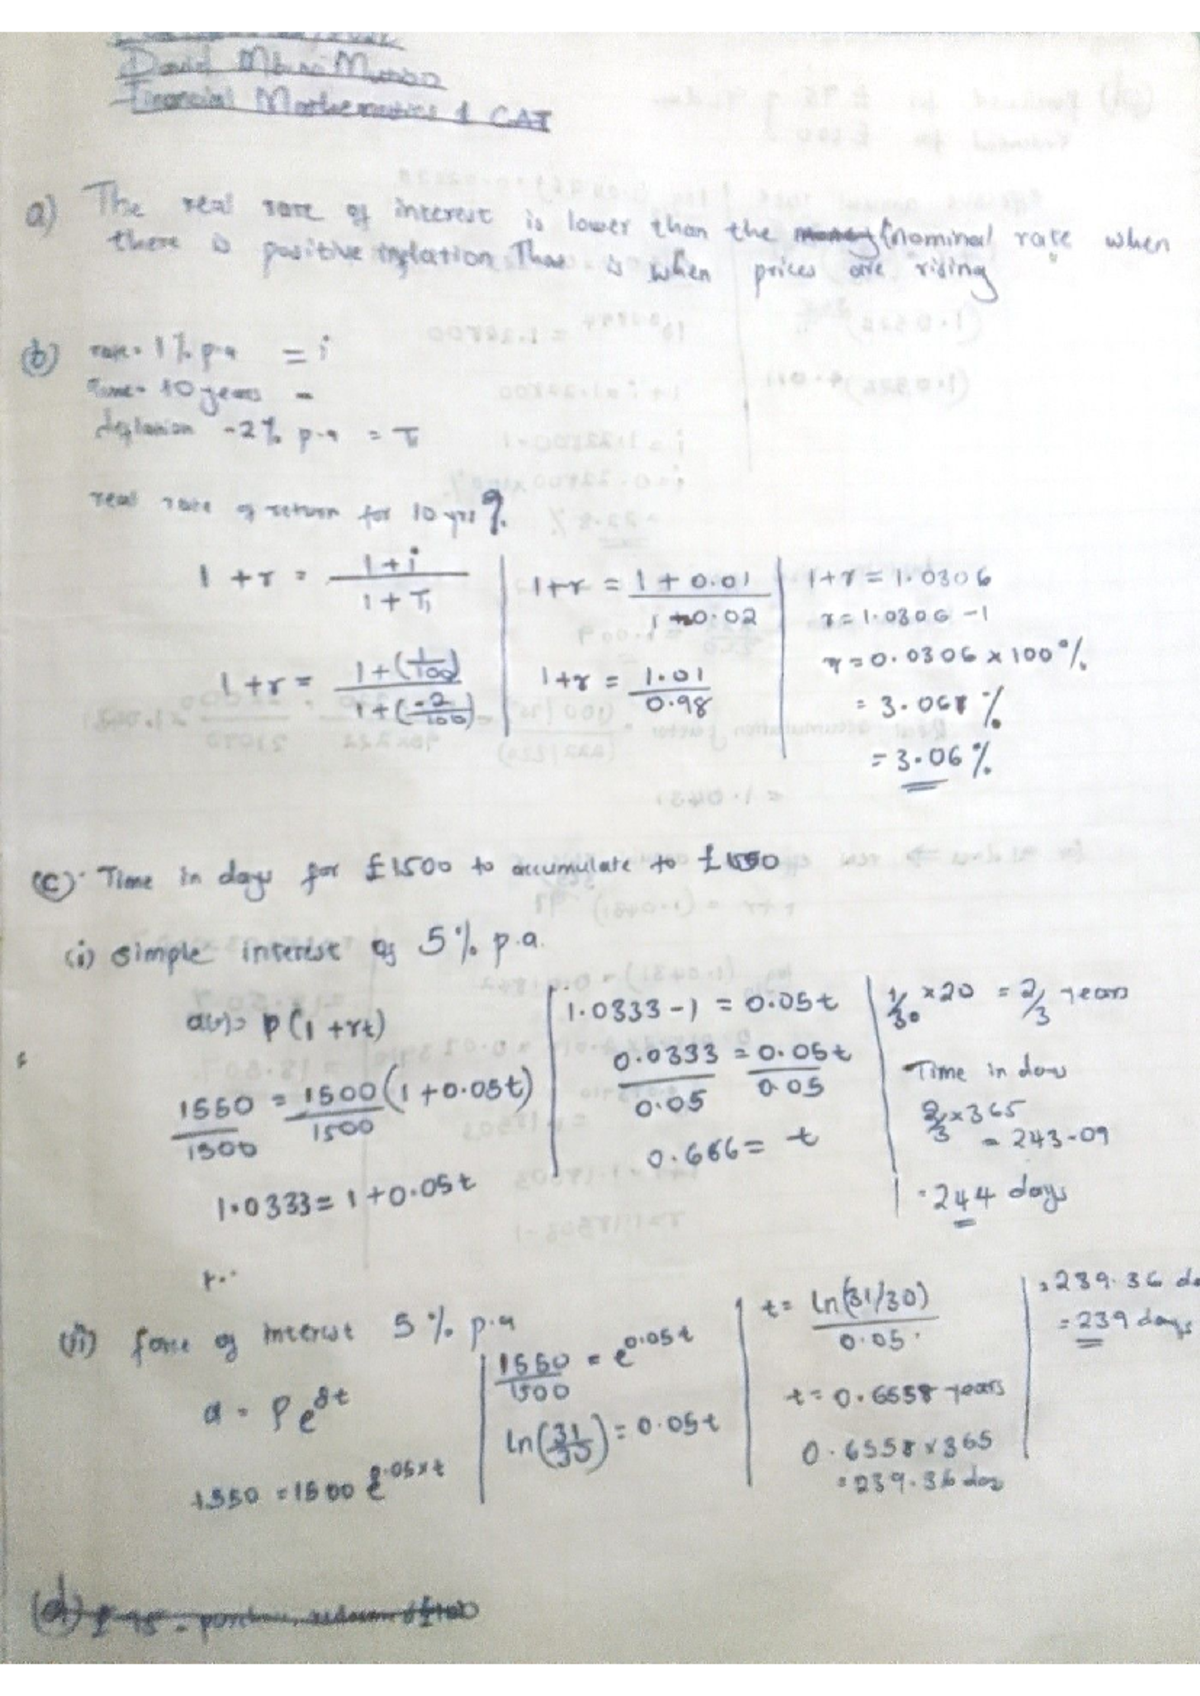 Financial Mathematics 1 CAT
a) The real rate of interest is lower than the money (nominal rate when
there is positive inflation. That is when prices are rising
(b) rate = 1% p.a = i
Time = 10 years =
deflation -2% p.a = π
real rate of return for 10 yrs ?.
1 + r = (1 + i)/(1 + π)
1 + r = (1 + (1/100))/(1 + (-2/100))
1 + r = (1 + 0.01)/(1 - 0.02)
1 + r = 1.01/0.98
1 + r = 1.0306
r = 1.0306 - 1
r = 0.0306 x 100%
= 3.061%
= 3.06%
(c) Time in days for £1500 to accumulate to £1550
(i) simple interest of 5% p.a.
a(t) = P(1 + rt)
1550/1500 = 1500/1500 (1 + 0.05t)
1.0333 = 1 + 0.05t
1.0333 - 1 = 0.05t
0.0333/0.05 = 0.05t/0.05
0.666 = t
1/30 x 20 = 2/3 years
Time in days
2/3 x 365
= 243.09
= 244 days
(ii) force of interest 5% p.a
a = Pe^δt
1550 = 1500 e^0.05xt
1550/1500 = e^0.05t
ln(31/30) = 0.05t
t = ln(31/30)/0.05
t = 0.6558 years
0.6558 x 365
= 239.36 days
= 239.36 da
= 239 days
(d) £95 -